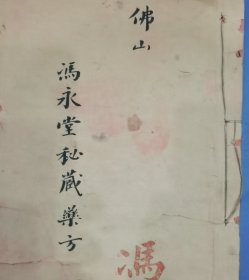 佛山
馮永堂秘藏藥方
馮